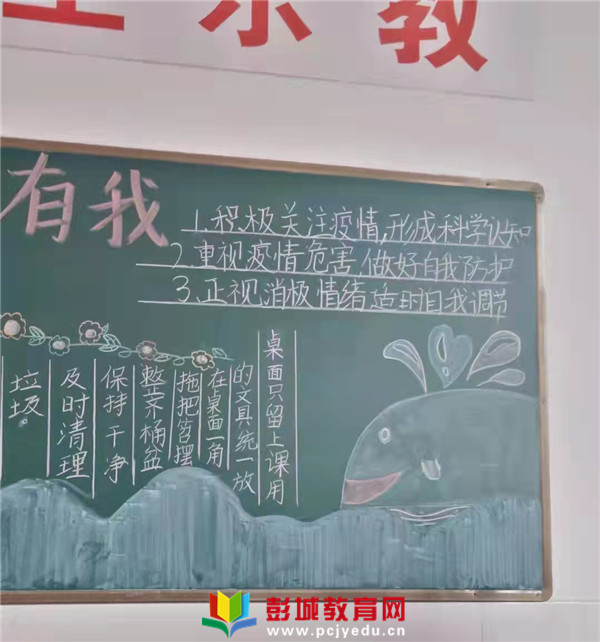 教
有我
1.积极关注疫情,形成科学认知
2.重视疫情危害,做好自我防护
3.正视消极情绪适时自我调节
桌面只留上课用
的文具统一放
在桌面一角
拖把笤摆
整齐桶盆
保持干净
及时清理
垃圾
彭城教育网
www.pcjyedu.cn